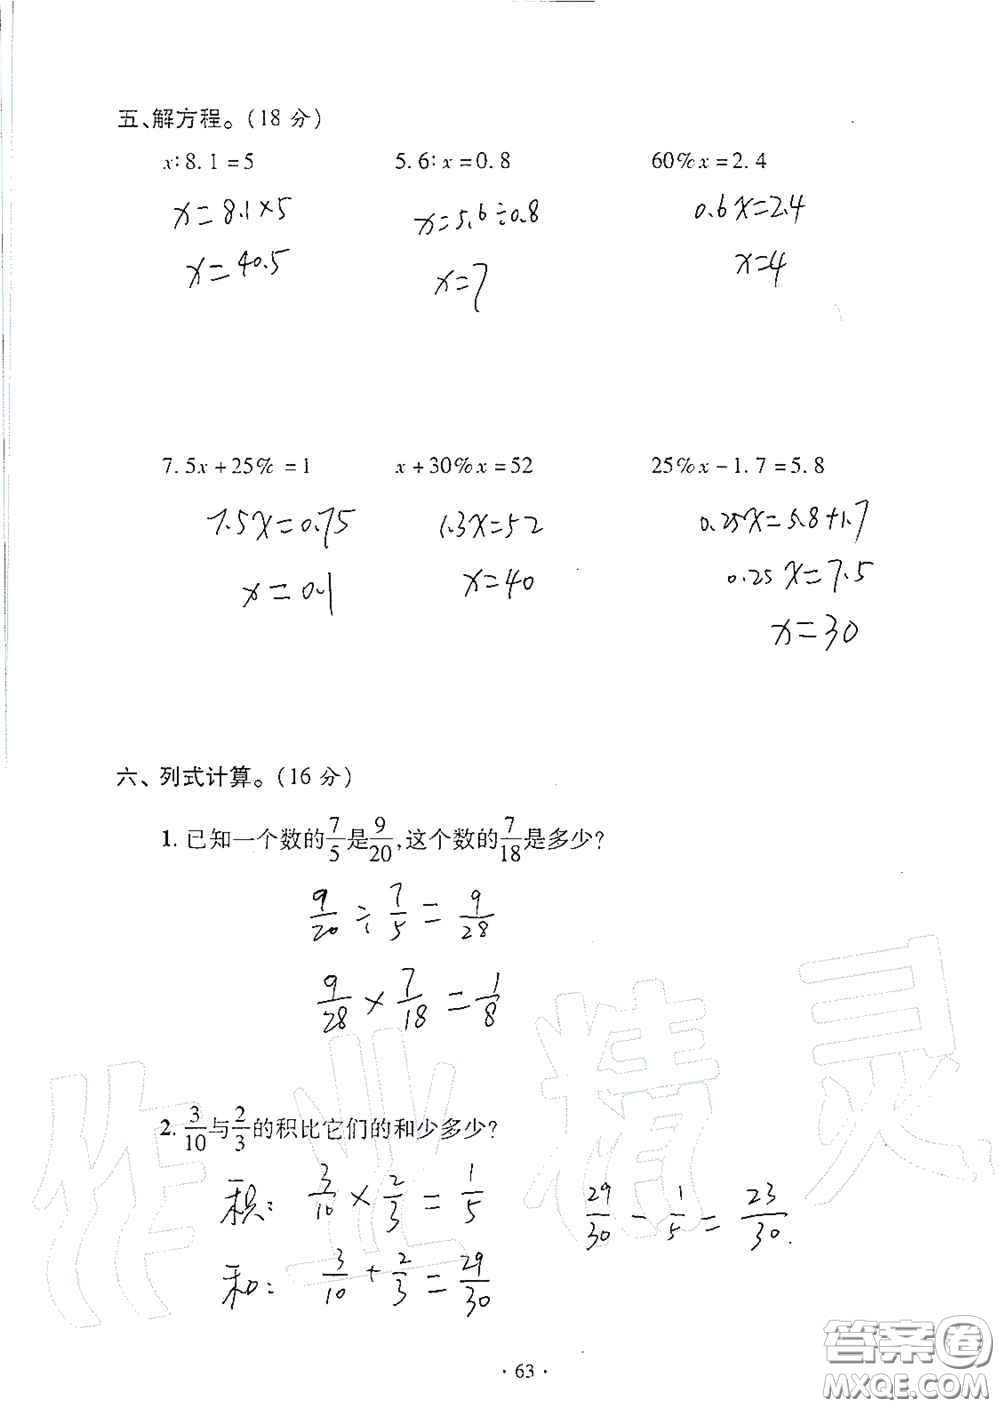 五、解方程。(18 分)
x∶8.1=5 5.6∶x=0.8 60%x=2.4
x=8.1×5 x=5.6÷0.8 0.6x=2.4
x=40.5 x=7 x=4
7.5x+25% =1 x+30%x=52 25%x-1.7=5.8
7.5x=0.75 1.3x=52 0.25x=5.8+1.7
x=0.1 x=40 0.25x=7.5
x=30
六、列式计算。(16 分)
1. 已知一个数的7/5是9/20,这个数的7/18是多少?
9/20÷7/5=9/28
9/28×7/18=1/8
2. 3/10与2/3的积比它们的和少多少?
积: 3/10×2/3=1/5 29/30-1/5=23/30.
和: 3/10+2/3=29/30
作业精灵
答案圈
MXQE.COM
· 63 ·